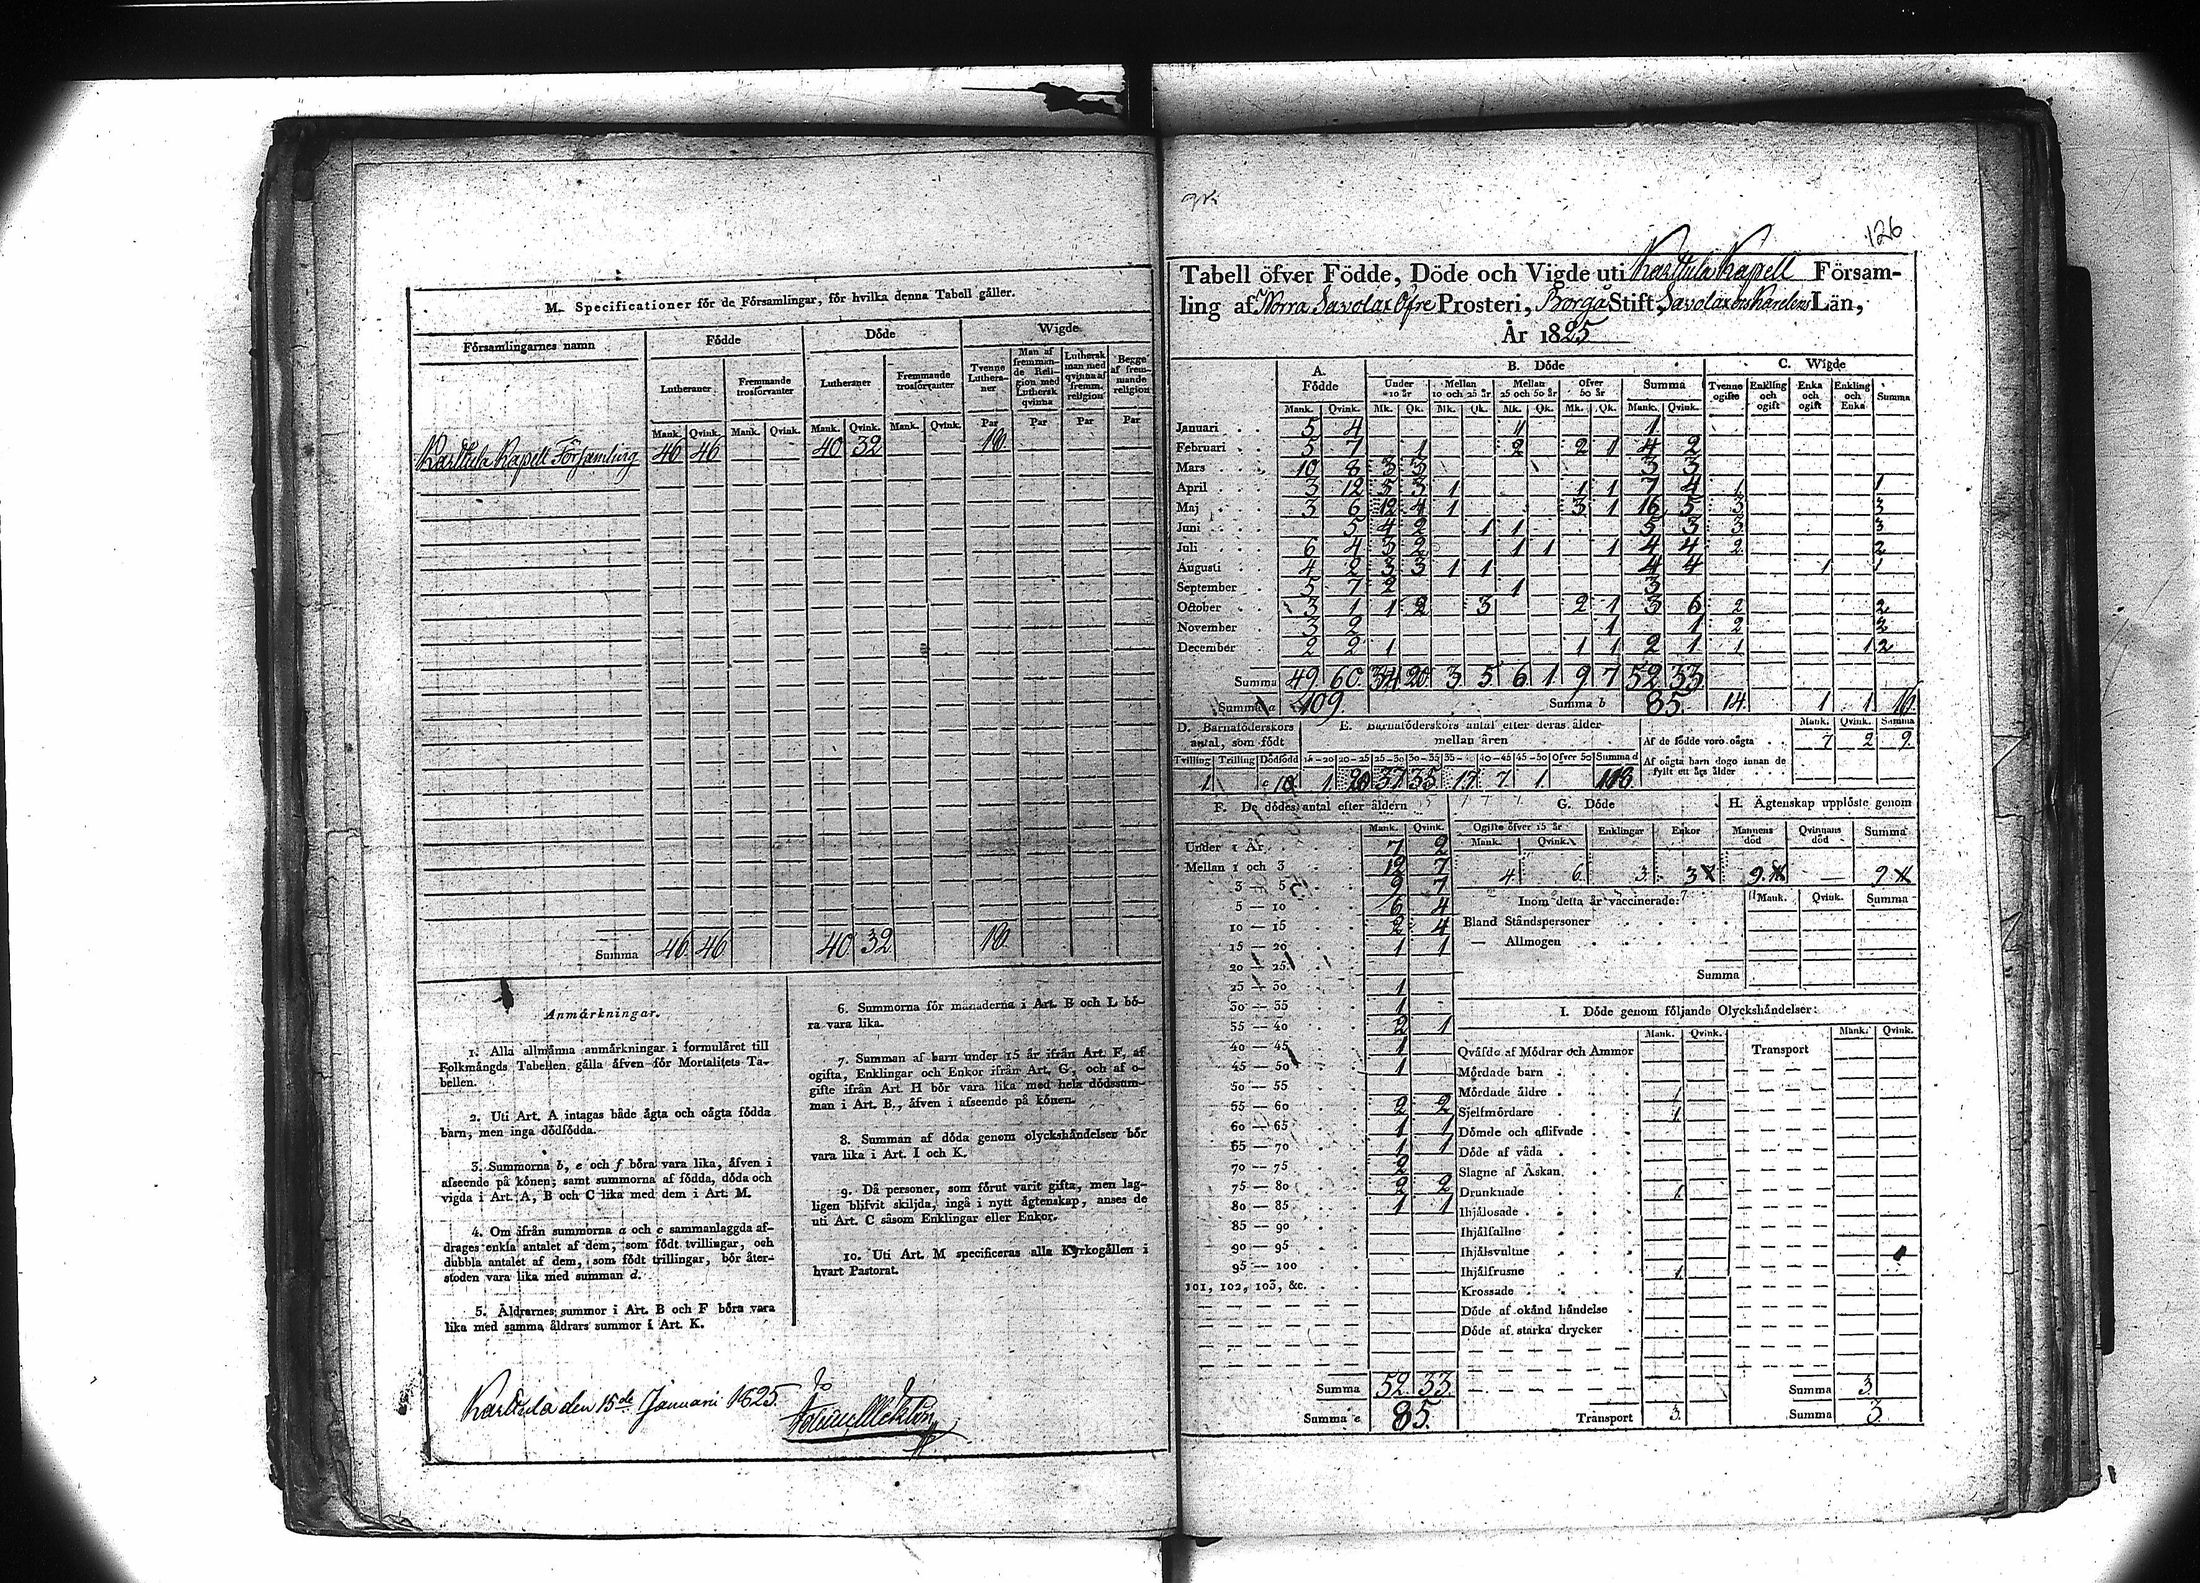 M. Specificationer för de Församlingar, för hvilka denna Tabell gäller.
Församlingarnes namn | Födde | Döde | Wigde
Lutheraner | Fremmande trosförvanter | Lutheraner | Fremmande trosförvanter | Tvenne Lutheraner | Man af fremmande Religion med Luthersk qvinna | Luthersk man med qvinna af fremm. religion | Begge af fremmande religion
Mank. Qvink. Mank. Qvink. Mank. Qvink. Mank. Qvink. Par Par Par Par
Karttula Kapell Församling 46 46 40 32 10.
Summa 46 46 40 32 10.
Anmärkningar.
1. Alla allmänna anmärkningar i formuläret till
Folkmängds Tabellen gälla äfven för Mortalitets Ta-
bellen.
2. Uti Art. A intagas både ägta och oägta födda
barn, men inga dödfödda.
3. Summorna b, e och f böra vara lika, äfven i
afseende på könen; samt summorna af födda, döda och
vigda i Art. A, B och C lika med dem i Art. M.
4. Om ifrån summorna a och c sammanlaggda af-
drages enkla antalet af dem, som födt tvillingar, och
dubbla antalet af dem, som födt trillingar, bör åter-
stoden vara lika med summan d.
5. Åldrarnes summor i Art. B och F böra vara
lika med samma åldrars summor i Art. K.
6. Summorna för månaderna i Art. B och L bö-
ra vara lika.
7. Summan af barn under 15 år ifrån Art. F, af
ogifta, Enklingar och Enkor ifrån Art. G, och af o-
gifte ifrån Art. H bör vara lika med hela dödssum-
man i Art. B., äfven i afseende på könen.
8. Summan af döda genom olyckshändelser bör
vara lika i Art. I och K.
9. Då personer, som förut varit gifta, men lag-
ligen blifvit skiljda, ingå i nytt ägtenskap, anses de
uti Art. C såsom Enklingar eller Enkor.
10. Uti Art. M specificeras alla Kyrkogällen i
hvart Pastorat.
Karttula den 15de Januari 1825.
126
Tabell öfver Födde, Döde och Vigde uti Karttula Kapell Församling
af Norra Savolax Öfre Prosteri, Borgå Stift, Savolax och Karelens Län,
År 1825
A. Födde | B. Döde | C. Wigde
Under 10 år | Mellan 10 och 25 år | Mellan 25 och 50 år | Öfver 50 år | Summa | Tvenne ogifte | Enkling och ogift | Enka och ogift | Enkling och Enka | Summa
Mank. Qvink. Mk. Qk. Mk. Qk. Mk. Qk. Mk. Qk. Mank. Qvink.
Januari 5 4 1 1
Februari 5 7 1 2 2 1 4 2
Mars 10 8 3 3 3 3
April 3 12 5 3 1 1 1 7 4 1 1
Maj 3 6 12 4 1 3 1 16 5 3 3
Juni 5 4 2 1 1 5 3 3 3
Juli 6 4 3 2 1 1 1 4 4 2 2
Augusti 4 2 3 3 1 1 4 4 1 1
September 5 7 2 1 3
October 3 1 1 2 3 2 1 3 6 2 2
November 3 2 1 1 2 2
December 2 2 1 1 1 2 1 1 1 2
Summa 49 60 34 20 3 5 6 1 9 7 52 33
Summa a 109. Summa b 85. 14. 1 1 16
D. Barnaföderskors antal, som födt
Tvilling Trilling Dödfödd
1 10
E. Barnaföderskors antal efter deras ålder
mellan åren
15-20 20-25 25-30 30-35 35-40 40-45 45-50 Öfver 50 Summa d
1 20 37 35 17 7 1 118
Mank. Qvink. Summa
Af de födde voro oägta 7 2 9.
Af oägta barn dogo innan de
fyllt ett års ålder
F. De dödes antal efter åldern
Mank. Qvink.
Under 1 År 7 2
Mellan 1 och 3 12 7
3 — 5 9 7
5 — 10 6 4
10 — 15 2 4
15 — 20 1 1
20 — 25
25 — 30 1
30 — 35 1
35 — 40 2 1
40 — 45 1
45 — 50 1
50 — 55
55 — 60 2 2
60 — 65 1 1
65 — 70 1 1
70 — 75 2
75 — 80 2 2
80 — 85 1 1
85 — 90
90 — 95
95 — 100
101, 102, 103, &c.
Summa 52 33
Summa e 85.
G. Döde
Ogifte öfver 15 år | Enklingar | Enkor
Mank. Qvink.
4 6 3 3
H. Ägtenskap upplöste genom
Mannens död | Qvinnans död | Summa
9. — 9
Inom detta år vaccinerade: Mank. Qvink. Summa
Bland Ståndspersoner
— Allmogen
Summa
I. Döde genom följande Olyckshändelser:
Mank. Qvink. Mank. Qvink.
Qväfde af Mödrar och Ammor
Transport
Mördade barn
Mördade äldre 1
Sjelfmördare 1
Dömde och aflifvade
Döde af våda
Slagne af Åskan
Drunknade 1
Ihjälosade
Ihjälfallne
Ihjälsvultne
Ihjälfrusne 1
Krossade
Döde af okänd händelse
Döde af starka drycker
Summa 3.
Transport 3. Summa 3.